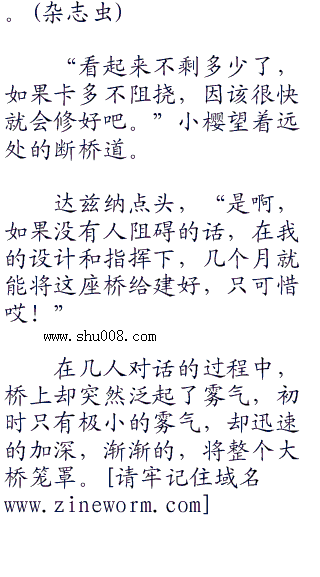 。(杂志虫)
“看起来不剩多少了，
如果卡多不阻挠，因该很快
就会修好吧。”小樱望着远
处的断桥道。
达兹纳点头，“是啊，
如果没有人阻碍的话，在我
的设计和指挥下，几个月就
能将这座桥给建好，只可惜
哎！”
www.shu008.com
在几人对话的过程中，
桥上却突然泛起了雾气，初
时只有极小的雾气，却迅速
的加深，渐渐的，将整个大
桥笼罩。[请牢记住域名
www.zineworm.com]